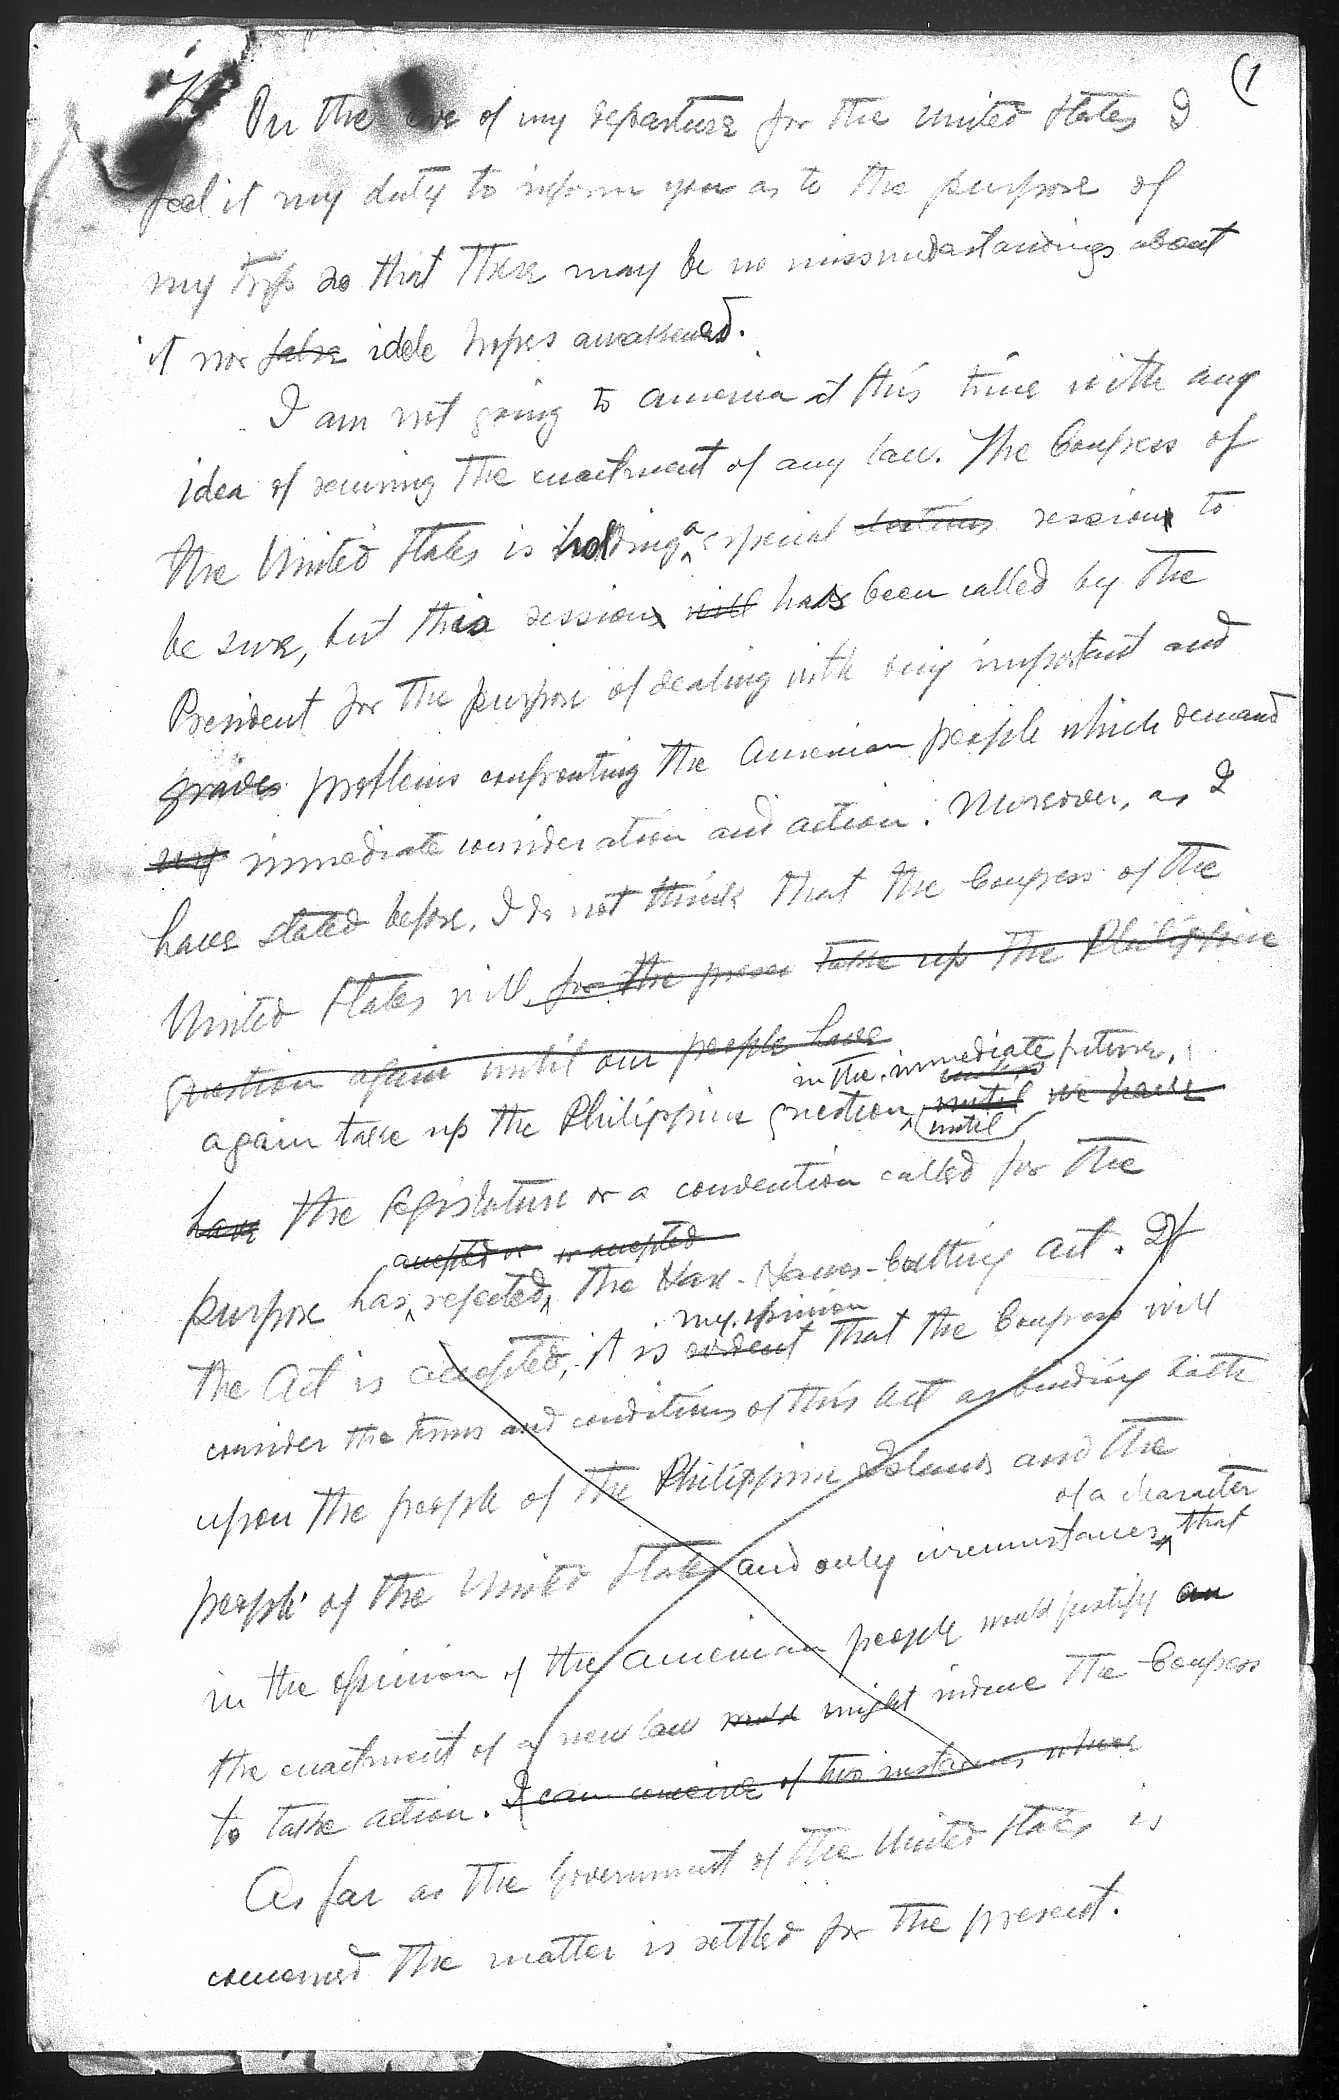 (1
On the eve of my departure for the United States I
feel it my duty to inform you as to the purpose of
my trip so that there may be no missunderstandings about
it nor false idle hopes awakened.
I am not going to America at this time with any
idea of securing the enactment of any law. The Congress of
the United States is holding a special sessions session to
be sure, but this session will has been called by the
President for the purpose of dealing with very important and
graves problems confronting the American people which demand
immediate consideration and action. Moreover, as I
have stated before, I do not think that the Congress of the
United States will for the presen take up the Philippine
question again until our people have
in the immediate future,
again take up the Philippine question, until we have
until
have the legislature or a convention called for the
accepted or or accepted
purpose has rejected, the Hare-Hawes-Cutting Act. If
my opinion
the Act is accepted, it is evident that the Congress will
consider the terms and conditions of this Act as binding both
upon the people of the Philippine Islands and the
of a character
people of the United States and only circumstances that
in the opinion of the American people would justify an
the enactment of a new law would might induce the Congress
to take action. I can conceive of two instances where
As far as the Government of the United States is
concerned the matter is settled for the present.